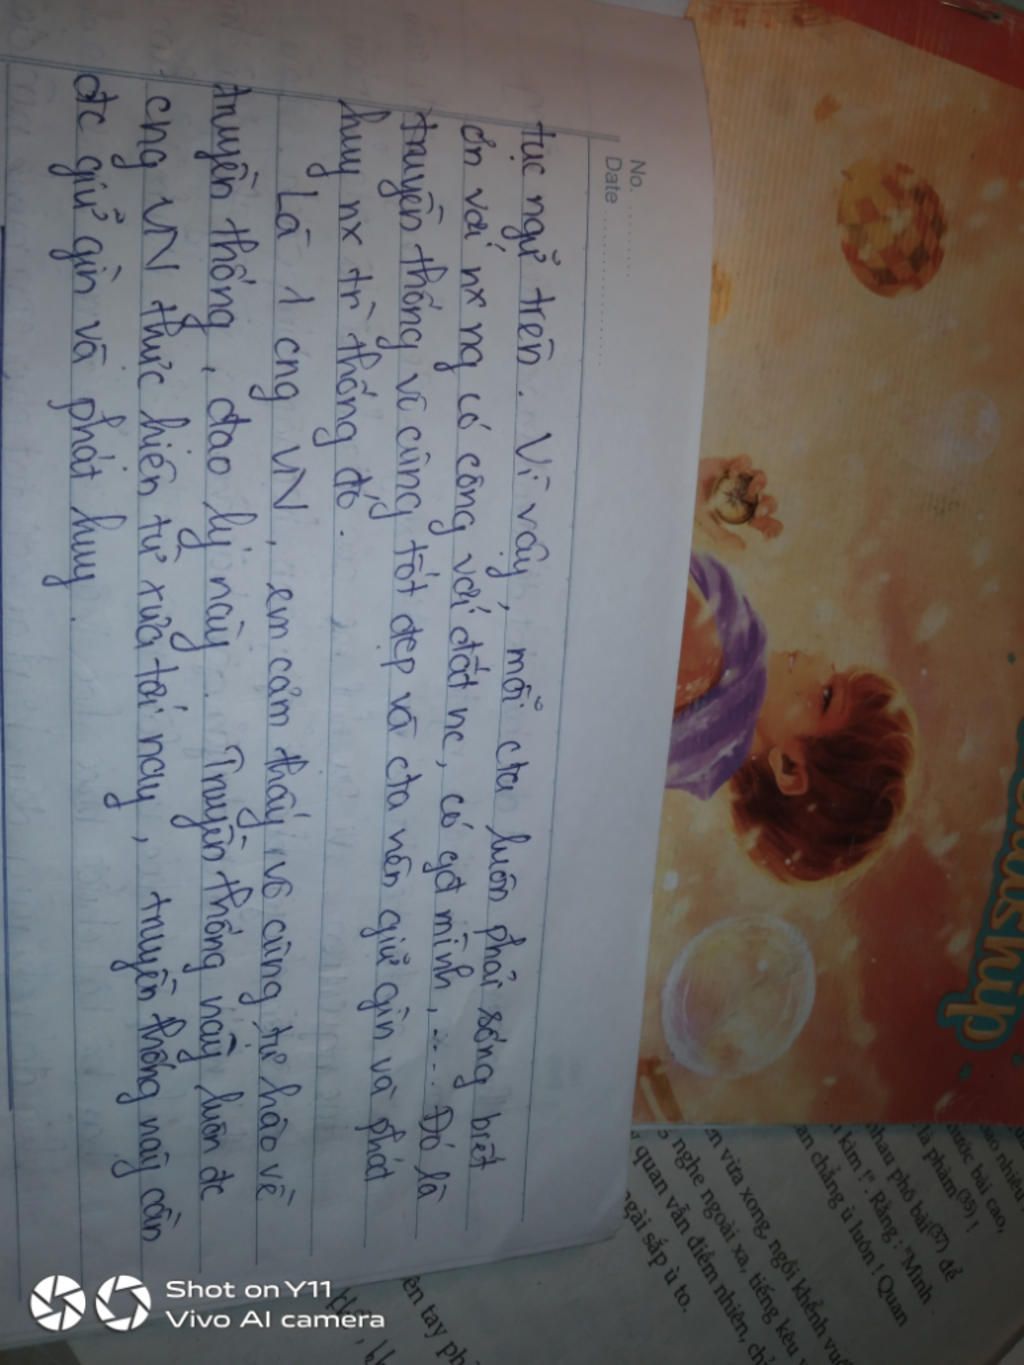 No. ..........
Date ....................
tục ngữ trên. Vì vậy, mỗi cta luôn phải sống biết
ơn với nx ng có công với đất nc, có gđ mình, .... Đó là
truyền thống vô cùng tốt đẹp và cta nên giữ gìn và phát
huy nx tr` thống đó.
Là 1 cng VN, em cảm thấy vô cùng tự hào về
truyền thống, đạo lý này. Truyền thống này luôn đc
cng VN thực hiện từ xưa tới nay, truyền thống này cần
đc giữ gìn và phát huy.
ndship
ao nhiêu
ước bài cao,
là phàm (35) !
nhau phô bài (37) để
kim !". Rằng : "Mình
an chẳng ù luôn ! Quan
ên vừa xong, ngồi khểnh vuố
nghe ngoài xa, tiếng kêu
quan vẫn điềm nhiên, chỉ
gài sắp ù to.
ên tay ph
Shot on Y11
Vivo AI camera